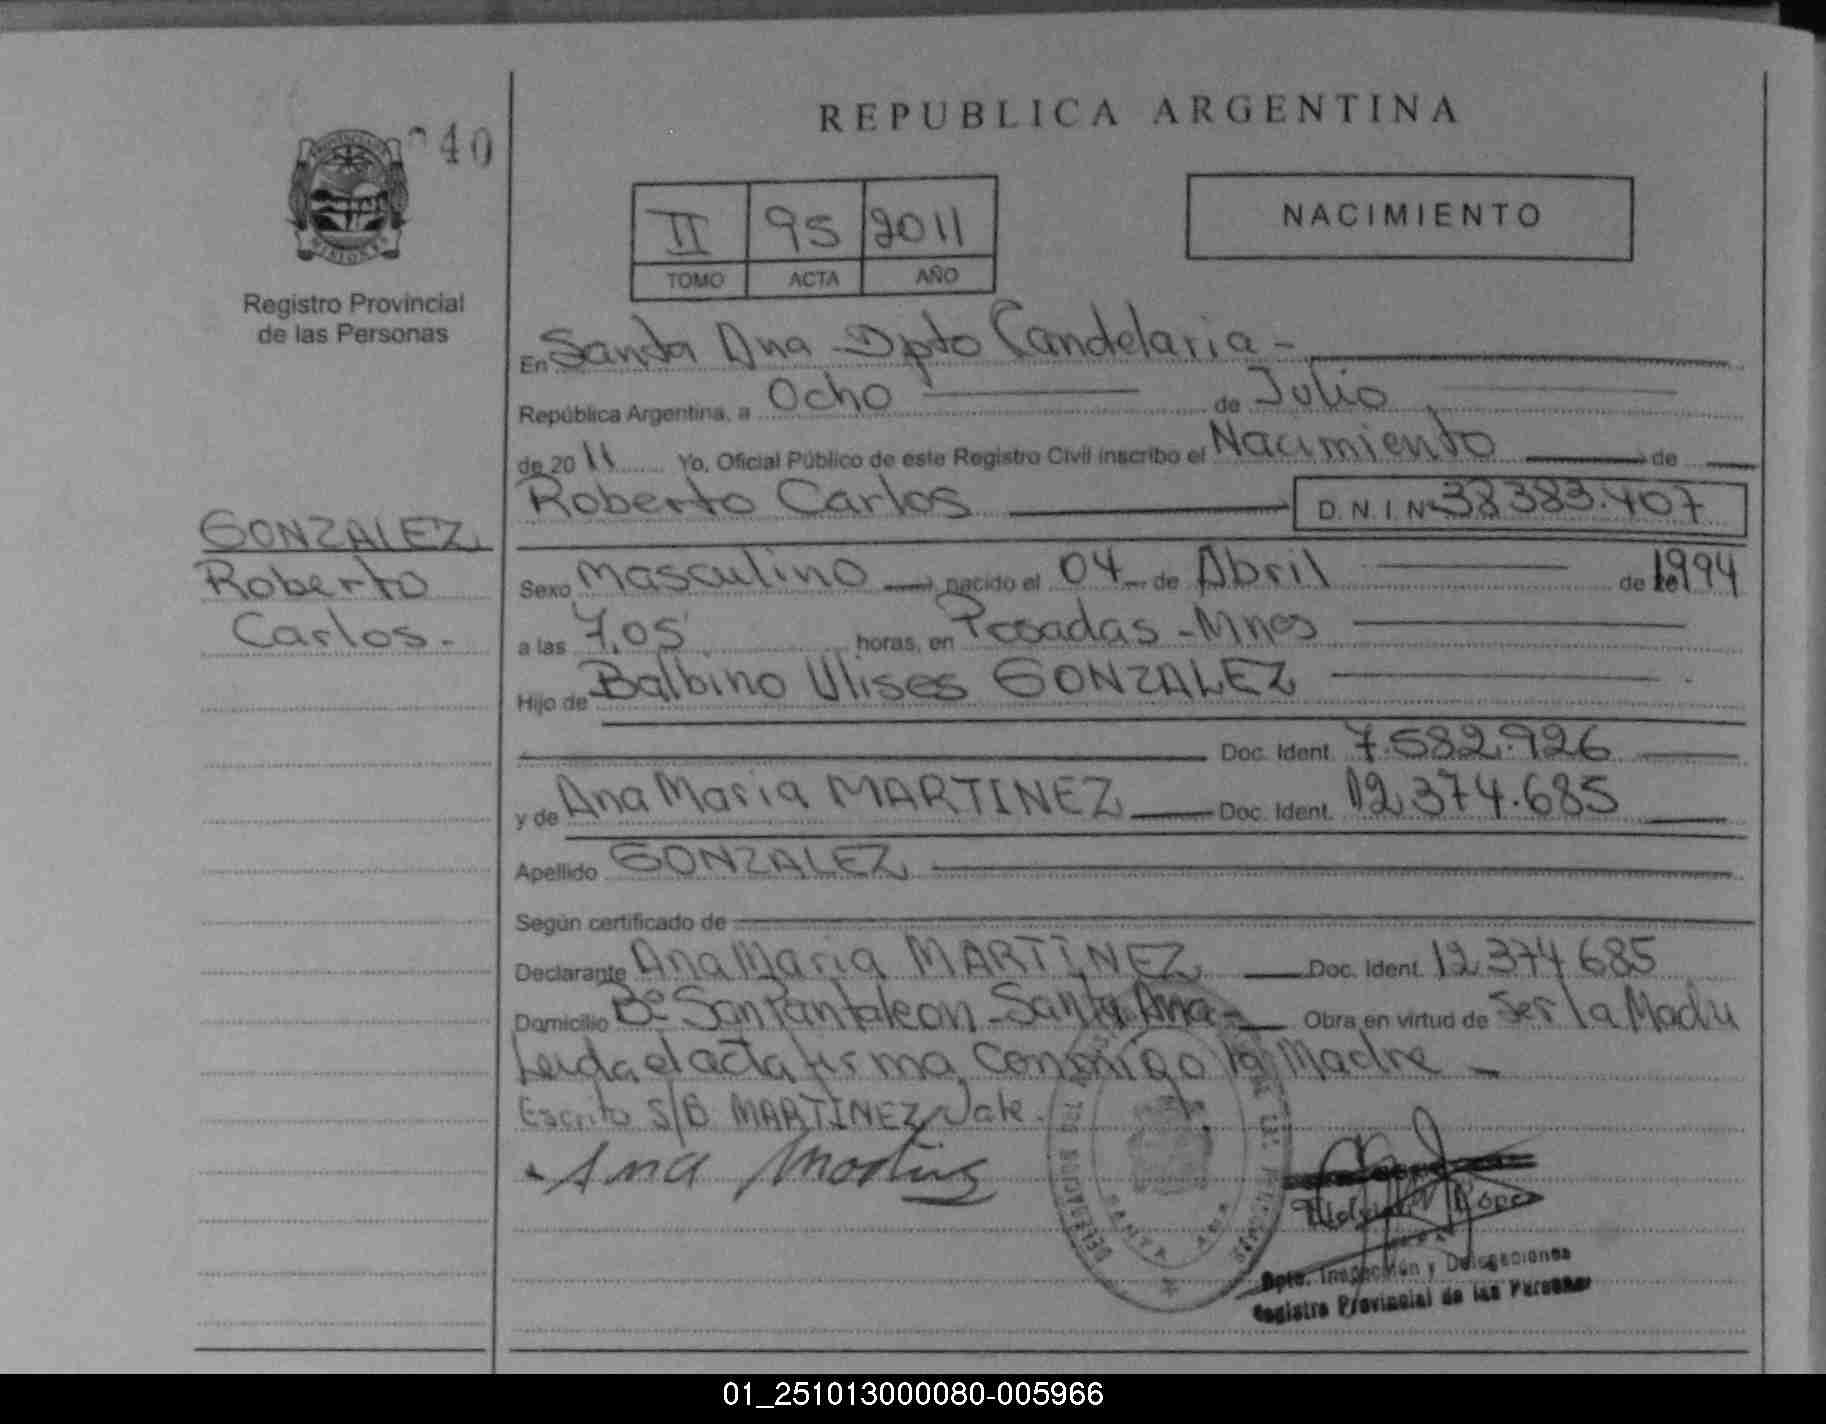 REPUBLICA ARGENTINA
40
II 95 2011
TOMO ACTA AÑO
NACIMIENTO
Registro Provincial
de las Personas
GONZALEZ
Roberto
Carlos.-
En Santa Ana - Dpto Candelaria -
República Argentina, a Ocho de Julio
de 2011 Yo, Oficial Público de este Registro Civil inscribo el Nacimiento de
Roberto Carlos D.N.I. Nº 38383.407
Sexo Masculino nacido el 04 de Abril de 1994
a las 7,05 horas, en Posadas - Mnes
Hijo de Balbino Ulises GONZALEZ
Doc. Ident. 7.582.926
y de Ana Maria MARTINEZ Doc. Ident. 12.374.685
Apellido GONZALEZ
Según certificado de
Declarante Ana Maria MARTINEZ Doc. Ident. 12.374 685
Domicilio Bº San Pantaleon - Santa Ana - Obra en virtud de Ser la Madre
Leida el acta firma conmigo la Madre -
Escrito S/B MARTINEZ Vale.
Ana Martinez
DELEGACION
SANTA ANA
Lopez
Dpto. Inspección y Delegaciones
Registro Provincial de las Personas
01_251013000080-005966